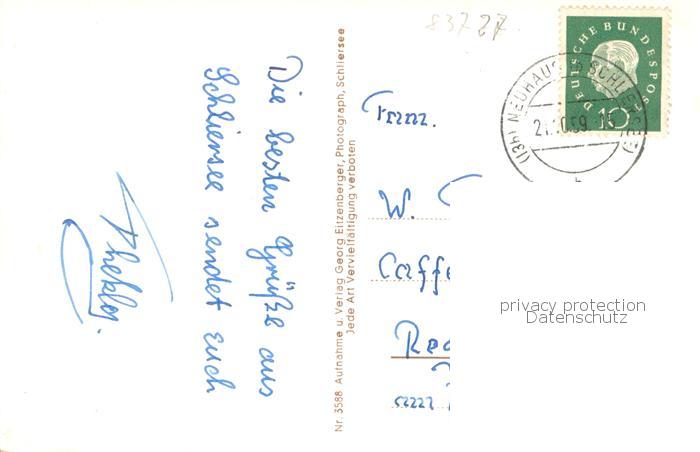 83727
DEUTSCHE BUNDESPOST
10
(13b) NEUHAUS
21.10.59-15
Die besten Grüße aus
Schliersee sendet Euch
Thekla.
Nr. 3588 Aufnahme u. Verlag Georg Eitzenberger, Photograph, Schliersee
Jede Art Vervielfältigung verboten
W.
Caffe
privacy protection
Datenschutz